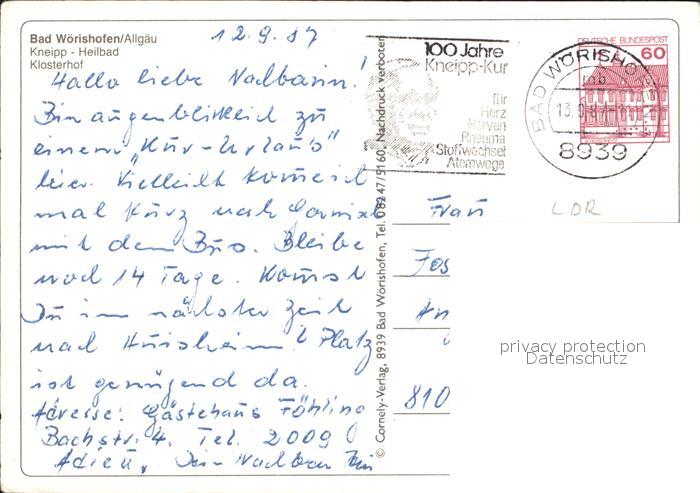 Bad Wörishofen/Allgäu
Kneipp - Heilbad
Klosterhof
12.9.87
Hallo liebe Nachbarin!
Bin augenblicklich zu
einem "Kur-Urlaub"
hier. Vielleicht komme ich
mal kurz nach
mit dem Bus. Bleibe
noch 14 Tage. Kommst
Du in nächster Zeit
nach ? Platz
ist genügend da.
Adresse: Gästehaus Föhling
Bachstr. 4. Tel. 2009
Adieu, Dein Nachbar
© Cornely-Verlag, 8939 Bad Wörishofen, Tel. 08247/5160, Nachdruck verboten
100 Jahre
Kneipp-Kur
für
Herz
Nerven
Rheuma
Stoffwechsel
Atemwege
BAD WÖRISHOFEN
8939
DEUTSCHE BUNDESPOST
60
Frau
LDR
810
privacy protection
Datenschutz